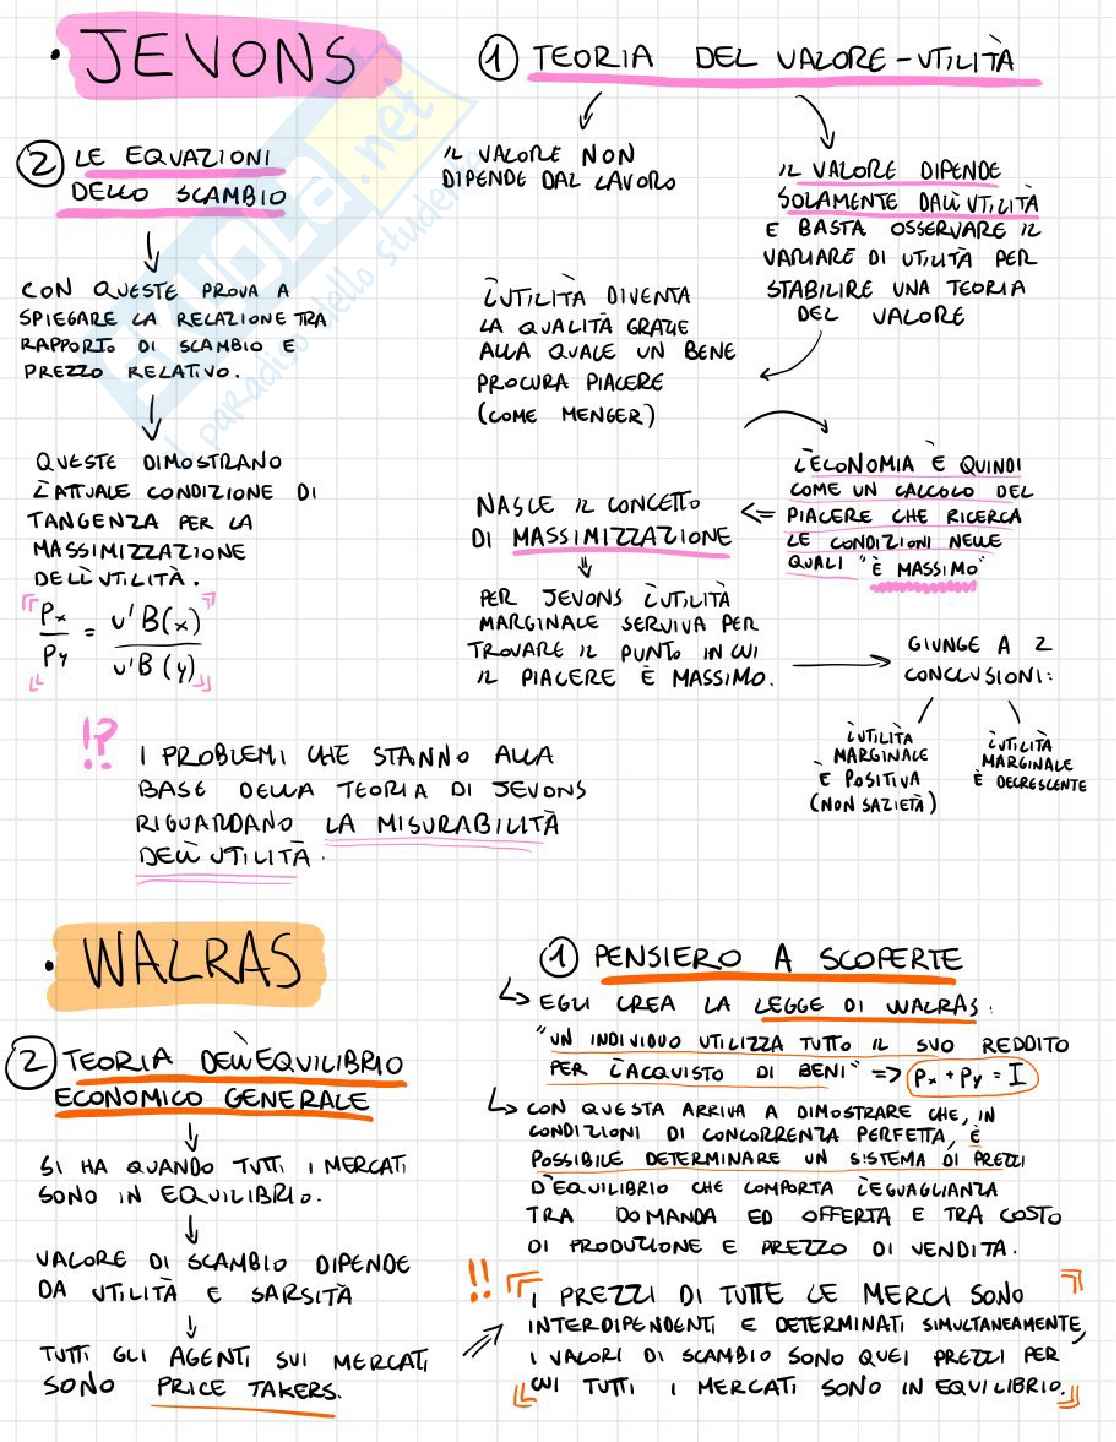 • JEVONS
① TEORIA DEL VALORE-UTILITÀ
IL VALORE NON
DIPENDE DAL LAVORO
IL VALORE DIPENDE
SOLAMENTE DALL'UTILITÀ
E BASTA OSSERVARE IL
VARIARE DI UTILITÀ PER
STABILIRE UNA TEORIA
DEL VALORE
L'UTILITÀ DIVENTA
LA QUALITÀ GRAZIE
ALLA QUALE UN BENE
PROCURA PIACERE
(COME MENGER)
L'ECONOMIA È QUINDI
COME UN CALCOLO DEL
PIACERE CHE RICERCA
LE CONDIZIONI NELLE
QUALI "È MASSIMO"
NASCE IL CONCETTO
DI MASSIMIZZAZIONE
PER JEVONS L'UTILITÀ
MARGINALE SERVIVA PER
TROVARE IL PUNTO IN CUI
IL PIACERE È MASSIMO.
GIUNGE A 2
CONCLUSIONI:
L'UTILITÀ
MARGINALE
È POSITIVA
(NON SAZIETÀ)
L'UTILITÀ
MARGINALE
È DECRESCENTE
② LE EQUAZIONI
DELLO SCAMBIO
CON QUESTE PROVA A
SPIEGARE LA RELAZIONE TRA
RAPPORTO DI SCAMBIO E
PREZZO RELATIVO.
QUESTE DIMOSTRANO
L'ATTUALE CONDIZIONE DI
TANGENZA PER LA
MASSIMIZZAZIONE
DELL'UTILITÀ.
Px/Py = U'B(x)/U'B(y)
!? I PROBLEMI CHE STANNO ALLA
BASE DELLA TEORIA DI JEVONS
RIGUARDANO LA MISURABILITÀ
DELL'UTILITÀ.
• WALRAS
① PENSIERO A SCOPERTE
EGLI CREA LA LEGGE DI WALRAS:
"UN INDIVIDUO UTILIZZA TUTTO IL SUO REDDITO
PER L'ACQUISTO DI BENI" => Px + Py = I
CON QUESTA ARRIVA A DIMOSTRARE CHE, IN
CONDIZIONI DI CONCORRENZA PERFETTA, È
POSSIBILE DETERMINARE UN SISTEMA DI PREZZI
D'EQUILIBRIO CHE COMPORTA L'EGUAGLIANZA
TRA DOMANDA ED OFFERTA E TRA COSTO
DI PRODUZIONE E PREZZO DI VENDITA.
!! I PREZZI DI TUTTE LE MERCI SONO
INTERDIPENDENTI E DETERMINATI SIMULTANEAMENTE,
I VALORI DI SCAMBIO SONO QUEI PREZZI PER
CUI TUTTI I MERCATI SONO IN EQUILIBRIO.
② TEORIA DELL'EQUILIBRIO
ECONOMICO GENERALE
SI HA QUANDO TUTTI I MERCATI
SONO IN EQUILIBRIO.
VALORE DI SCAMBIO DIPENDE
DA UTILITÀ E SARSITÀ
TUTTI GLI AGENTI SUI MERCATI
SONO PRICE TAKERS.
skuola.net
il paradiso dello studente